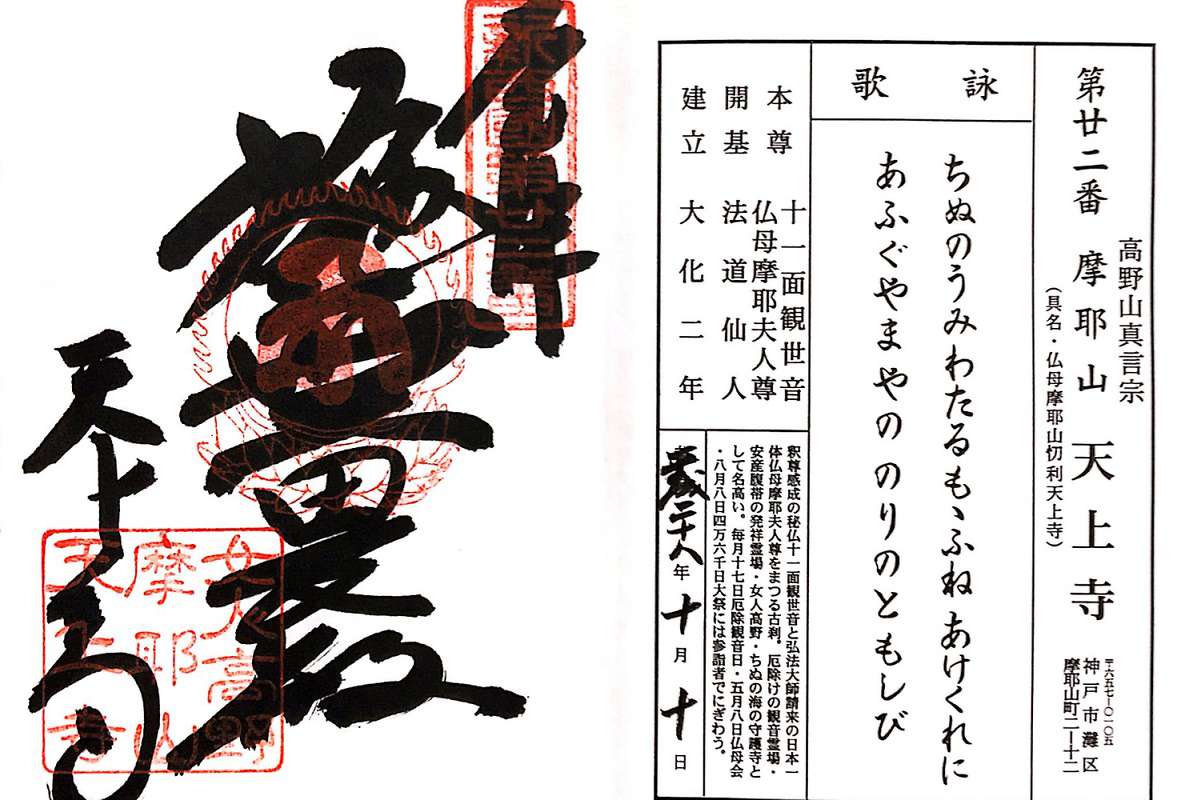 第廿二番 摩耶山 天上寺
高野山真言宗
（具名・仏母摩耶山忉利天上寺）
〒六五七-〇一〇五
神戸市灘区
摩耶山町二-十二
詠歌
ちぬのうみわたるもゝふね あけくれに
あふぐやまやの のりのともしび
本尊 十一面観世音
仏母摩耶夫人尊
開基 法道仙人
建立 大化二年
釈尊感成の秘仏十一面観世音と弘法大師請来の日本一
体仏母摩耶夫人尊をまつる古刹。厄除けの観音霊場・
安産腹帯の発祥霊場・女人高野・ちぬの海の守護寺と
して名高い。毎月十七日厄除観音日・五月八日仏母会
・八月八日四万六千日大祭には参詣者でにぎわう。
二十八年十月十日
奉拝
天上寺
女人高野
摩耶山
天上寺